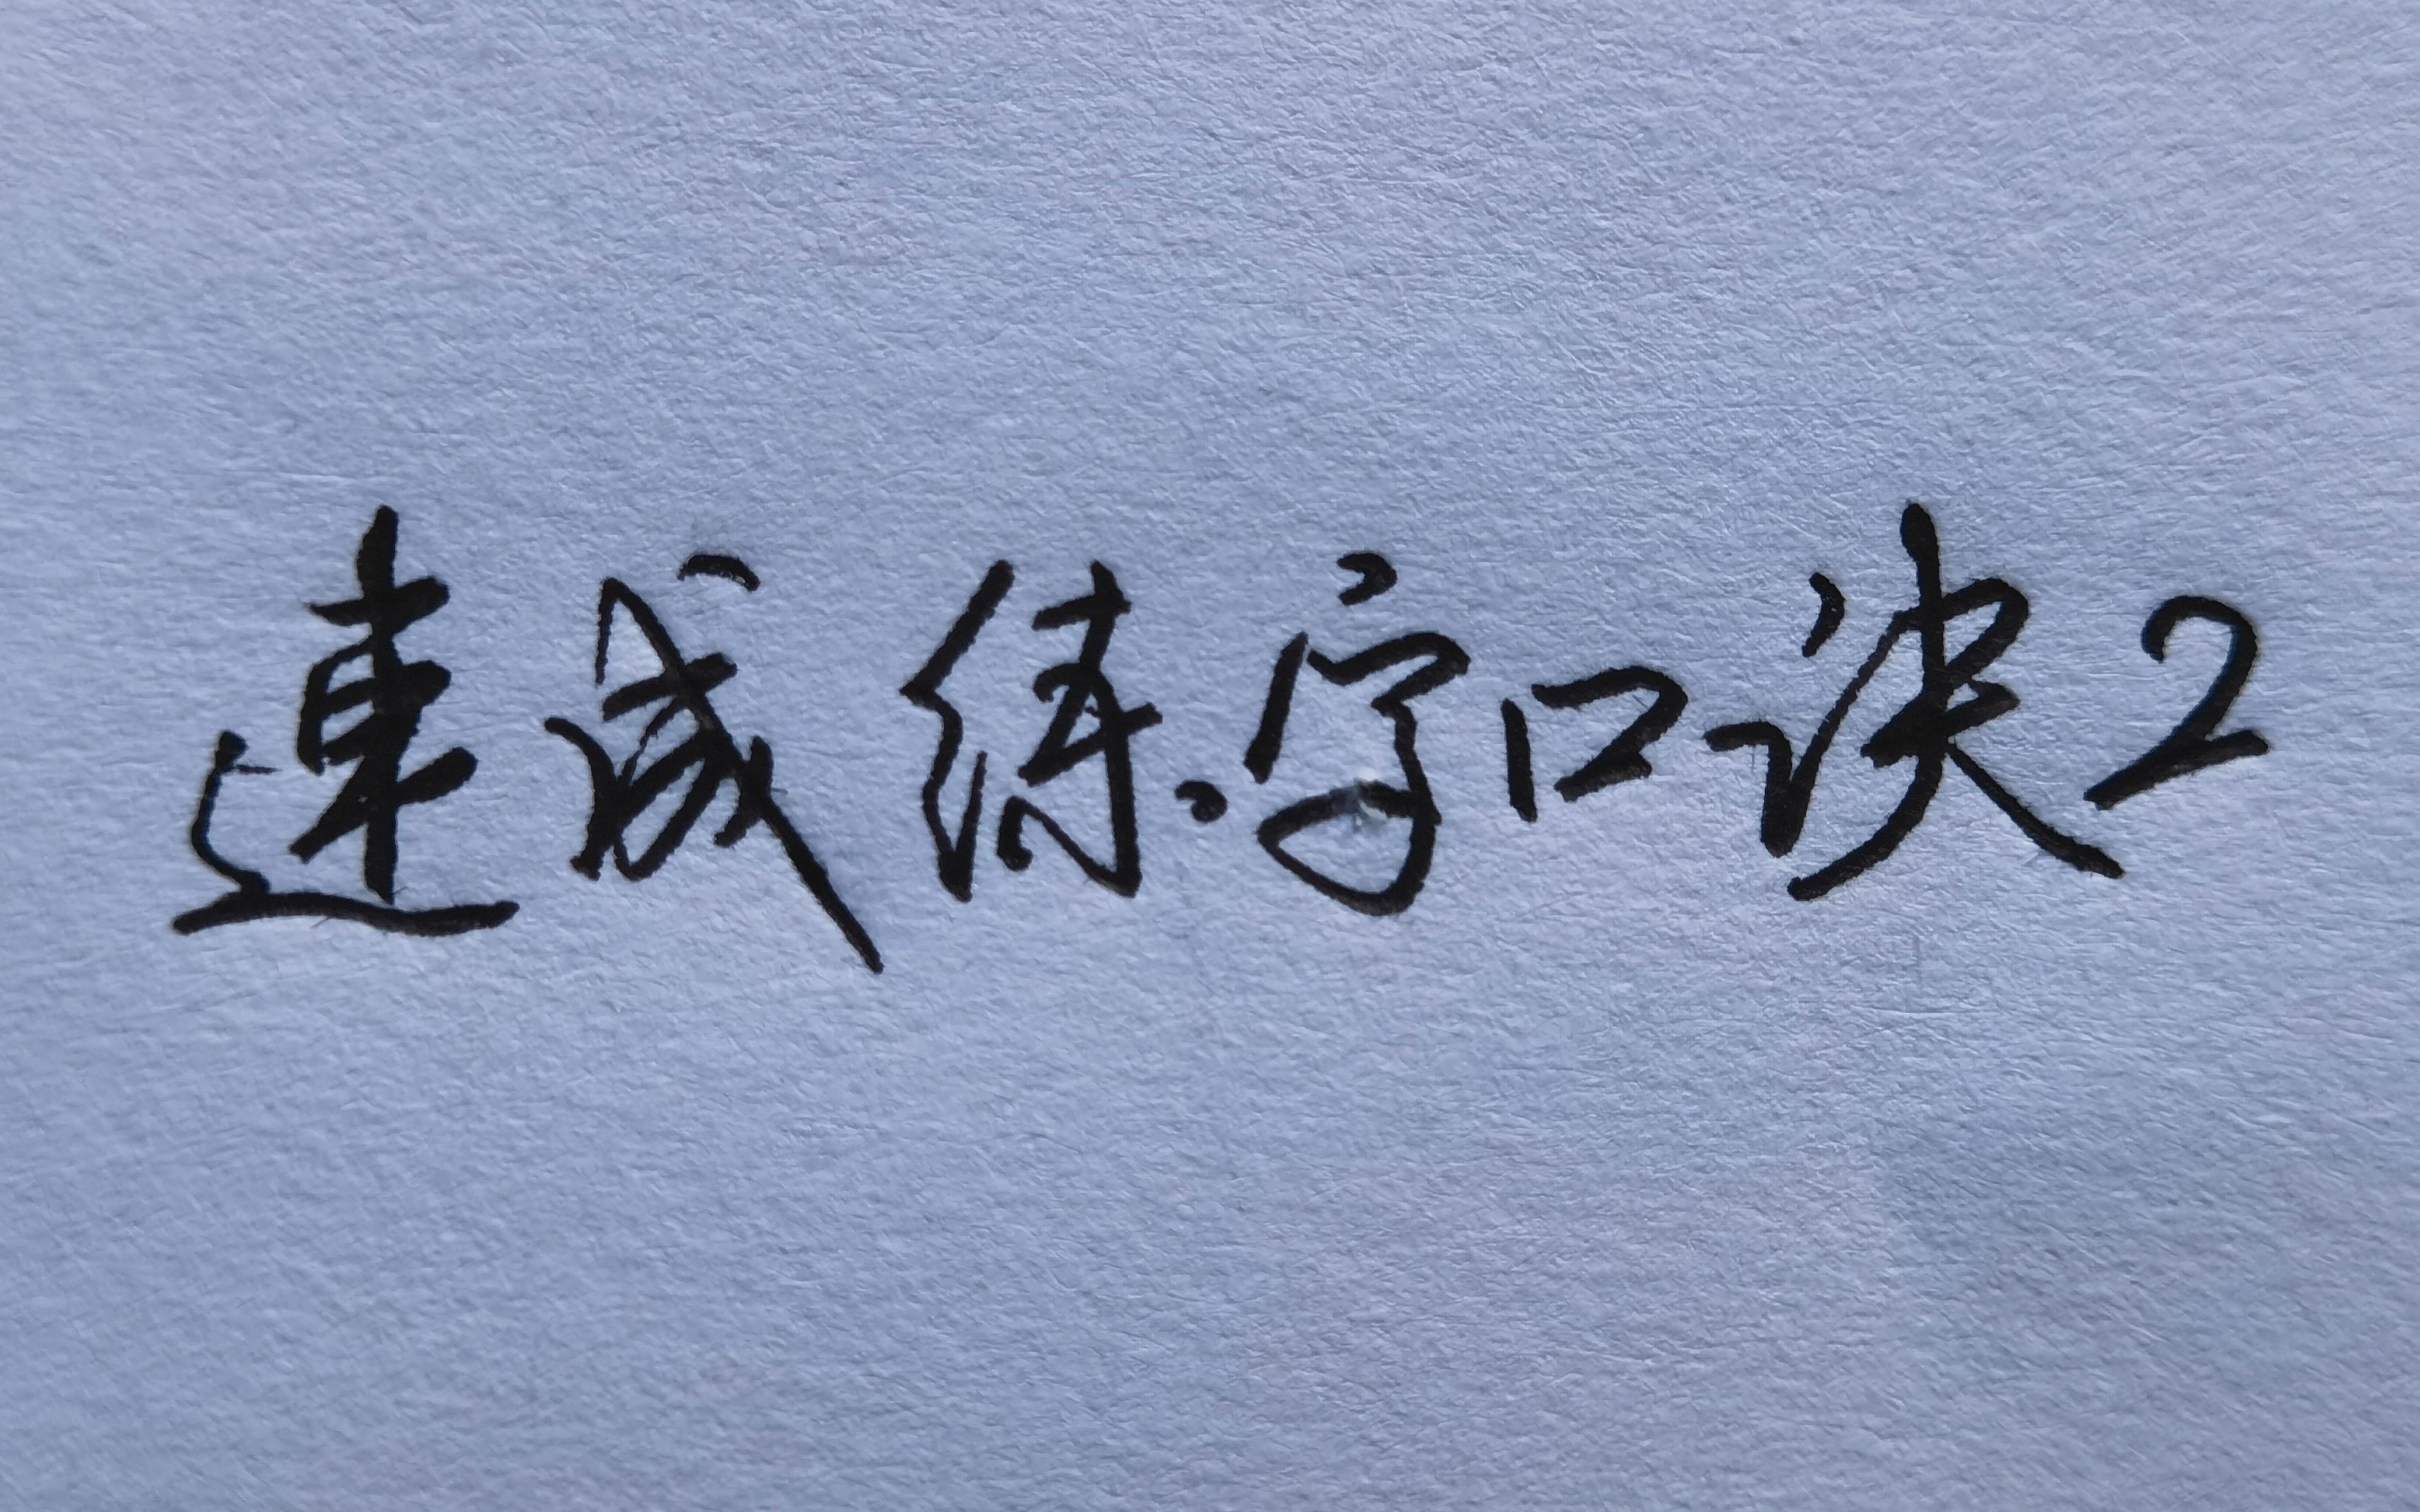 速成练字口诀2